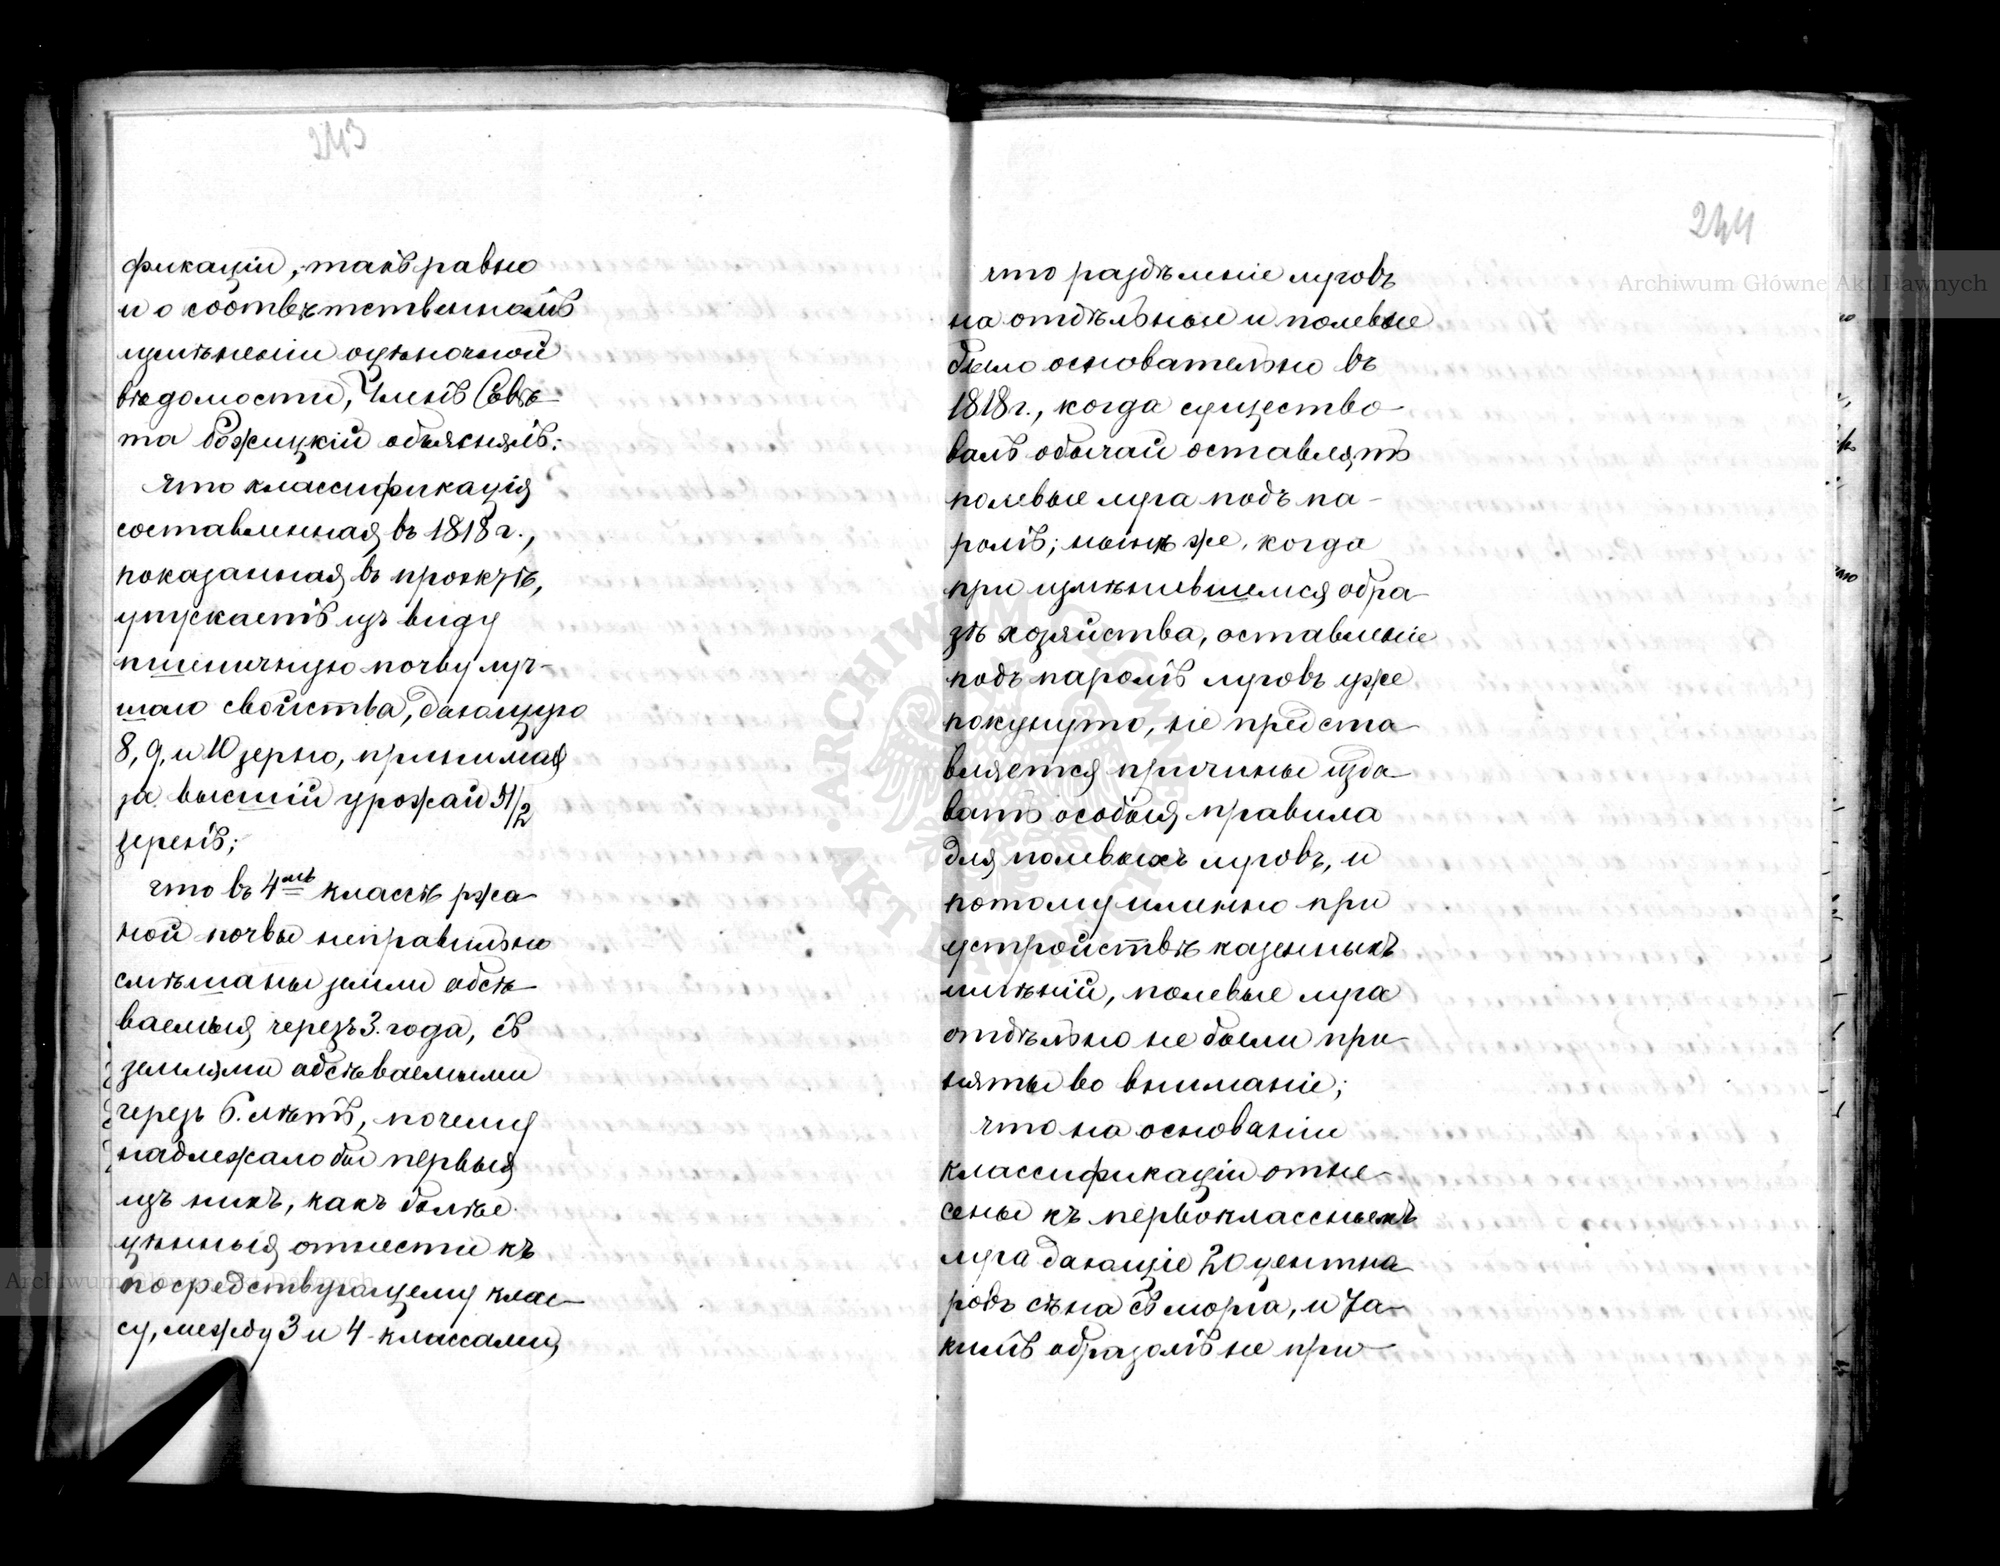 243
фикаціи, такъ равно
и о соотвѣтственномъ
измѣненіи оцѣночной
вѣдомости, Членъ Совѣ-
та Божицкій объяснялъ:
что классификація
составленная въ 1818 г.,
показанная въ проэктѣ,
упускаетъ изъ виду
пшеничную почву луч-
шаго свойства, дающую
8, 9, и 10 зерно, принимая
за высшій урожай 5 1/2
зеренъ;
что въ 4мъ классѣ ржа-
ной почвы неправильно
смѣшаны земли обсѣ-
ваемыя черезъ 3. года, съ
землями обсѣваемыми
черезъ 6. лѣтъ, почему
надлежало бы первыя
изъ нихъ, какъ болѣе
цѣнныя отнести къ
посредствующему клас-
су, между 3 и 4 классами;
244
что раздѣленіе луговъ
на отдѣльные и полевые
было основательно въ
1818 г., когда существо-
валъ обычай оставлять
полевые луга подъ па-
ромъ; нынѣ же, когда
при измѣнившемся обра-
зѣ хозяйства, оставленіе
подъ паромъ луговъ уже
покинуто, не предста-
вляется причины изда-
вать особыя правила
для полевыхъ луговъ, и
потому именно при
устройствѣ казенныхъ
имѣній, полевые луга
отдѣльно не были при-
няты во вниманіе;
что на основаніи
классификаціи отне-
сены къ первокласснымъ
луга дающіе 20 центна-
ровъ сѣна съ морга, и та-
кимъ образомъ не при-
Archiwum Główne Akt Dawnych
Archiwum Główne Akt Dawnych
ARCHIWUM GŁÓWNE AKT DAWNYCH